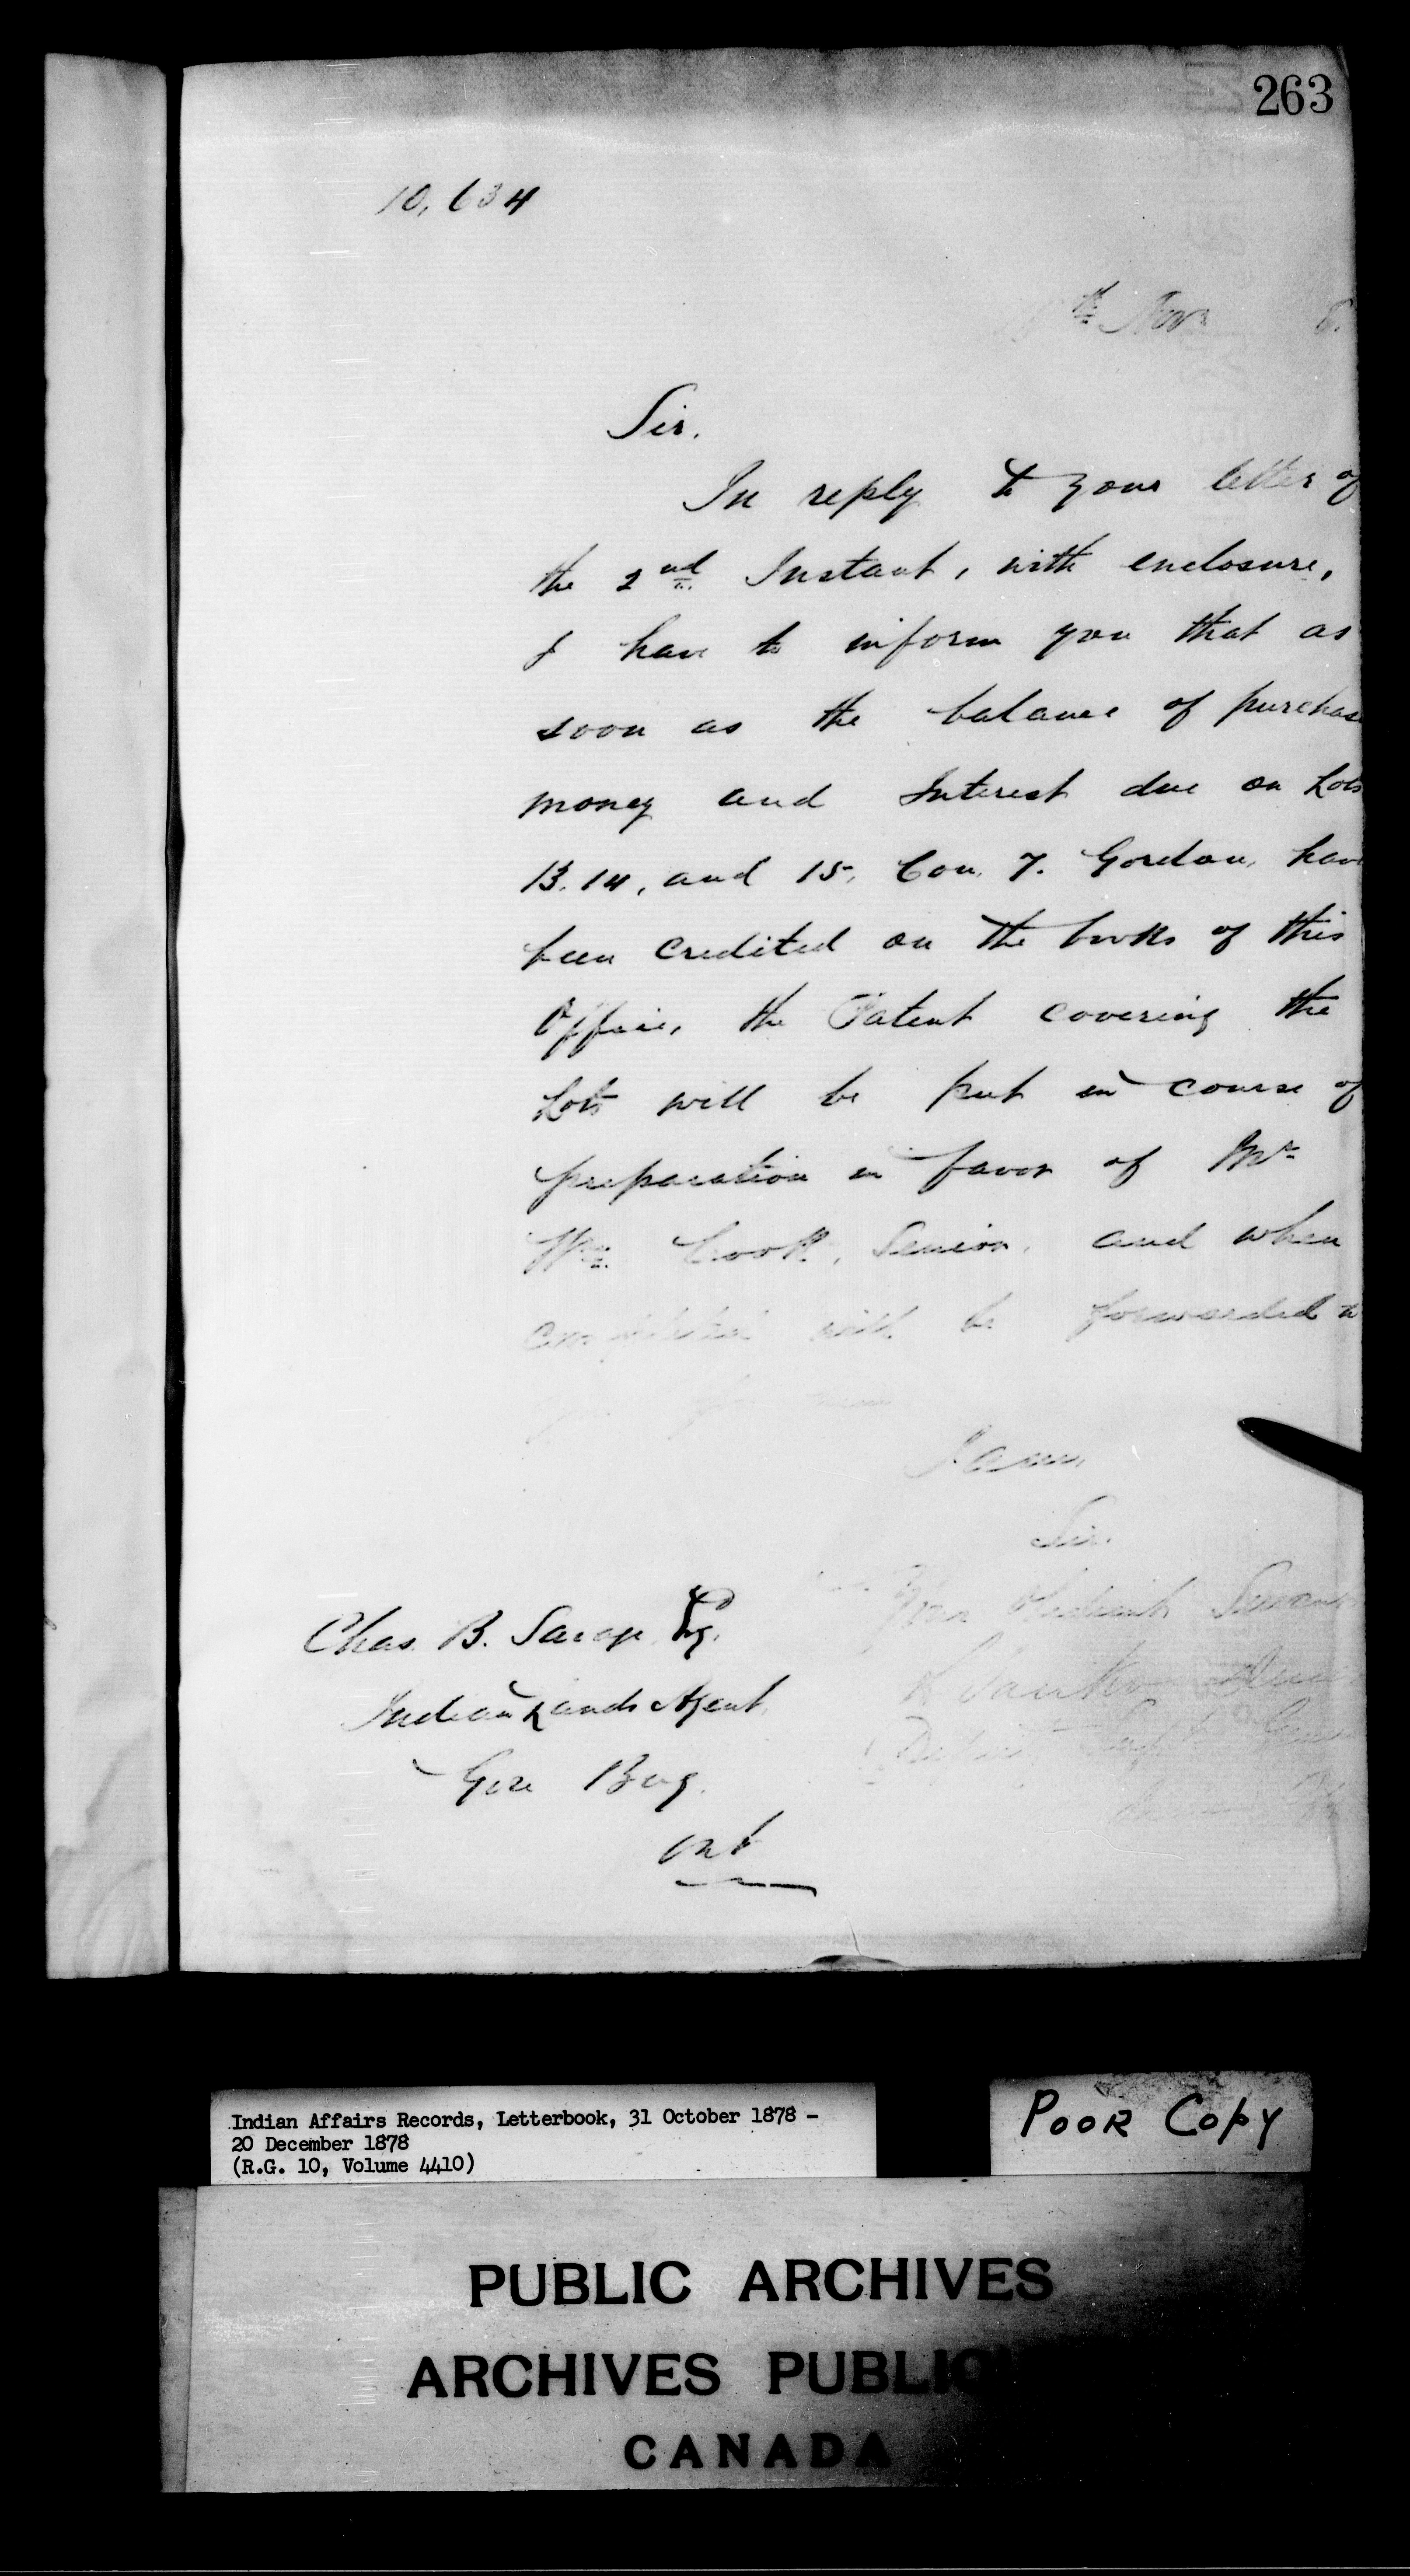 263
10,634
th Nov 8.
Sir.
In reply to your letter of
the 2nd Instant, with enclosure,
I have to inform you that as
soon as the balance of purchase
money and Interest due on Lots
13. 14, and 15, Con. 7. Gordon, have
been credited on the books of this
Office, the Patent covering the
Lots will be put in course of
preparation in favor of Mr
Wm Cook, Senior, and when
completed will be forwarded to
I am,
Sir.
Your Obedient Servant
Chas. B. Savage Esq.
Indian Lands Agent,
Gore Bay.
Ont
Deputy Supt Genl
Indian Affairs Records, Letterbook, 31 October 1878 -
20 December 1878
(R.G. 10, Volume 4410)
POOR COPY
PUBLIC ARCHIVES
ARCHIVES PUBLIQ
CANADA